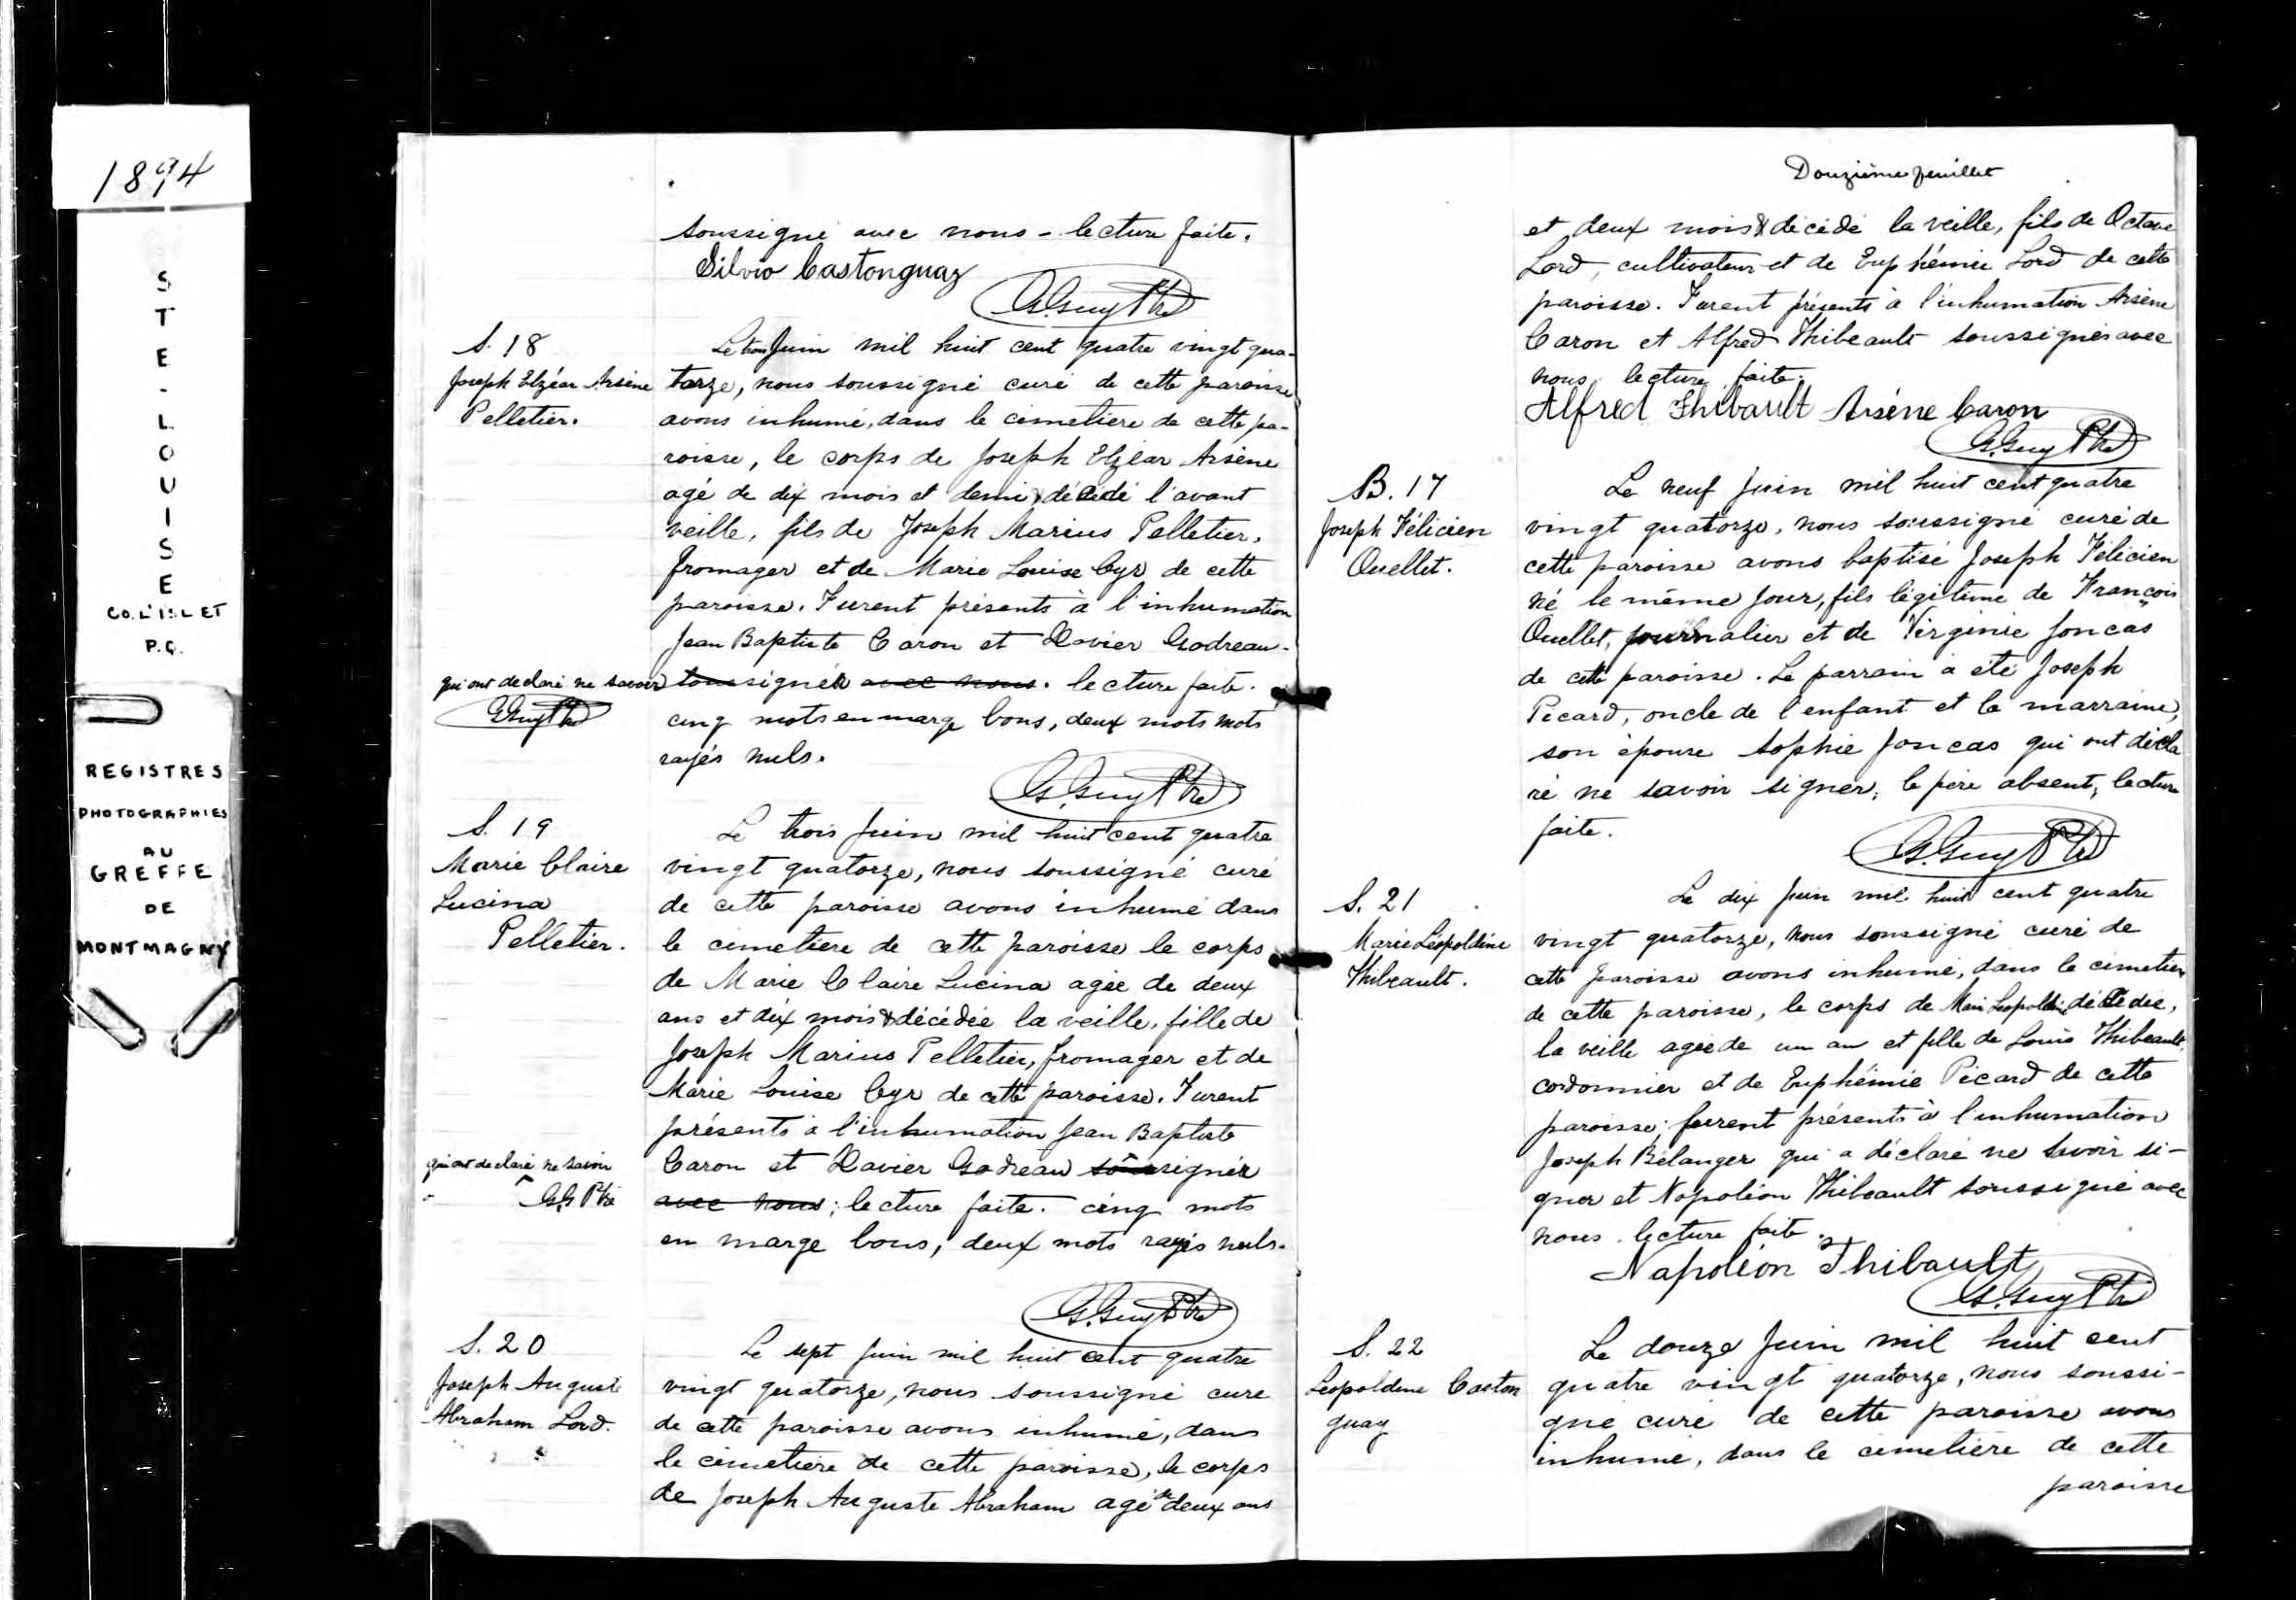 1894
STE-LOUISE
CO. L'ISLET
P.Q.
REGISTRES
PHOTOGRAPHIES
AU
GREFFE
DE
MONTMAGNY
soussigné avec nous - lecture faite.
Silvio Castonguay
G. Guy Ptre
S. 18
Joseph Elzéar Arsène
Pelletier.
Le trois Juin mil huit cent quatre vingt qua-
torze, nous soussigné curé de cette paroisse
avons inhumé, dans le cimetière de cette pa-
roisse, le corps de Joseph Elzéar Arsène
agé de dix mois et demi, décédé l'avant
veille, fils de Joseph Marius Pelletier,
fromager et de Marie Louise Cyr de cette
paroisse. Furent présents à l'inhumation
Jean Baptiste Caron et Xavier Godreau.
qui ont declaré ne savoir
G Guy Ptre
sous signer avec nous. lecture faite.
cinq mots en marge bons, deux mots mots
rayés nuls.
G. Guy Ptre
S. 19
Marie Claire
Lucina
Pelletier.
Le trois Juin mil huit cent quatre
vingt quatorze, nous soussigné curé
de cette paroisse avons inhumé dans
le cimetière de cette paroisse le corps
de Marie Claire Lucina agée de deux
ans et dix mois & décédée la veille, fille de
Joseph Marius Pelletier, fromager et de
Marie Louise Cyr de cette paroisse. Furent
présents à l'inhumation Jean Baptiste
qui ont declaré ne savoir
G.G Ptre
Caron et Xavier Godreau sous signer
avec nous; lecture faite. cinq mots
en marge bons, deux mots rayés nuls.
G. Guy Ptre
S. 20
Joseph Auguste
Abraham Lord.
Le sept Juin mil huit cent quatre
vingt quatorze, nous soussigné curé
de cette paroisse avons inhumé, dans
le cimetière de cette paroisse, le corps
de Joseph Auguste Abraham agé de deux ans
Douzième feuillet
et deux mois & décédé la veille, fils de Octave
Lord, cultivateur et de Euphémie Lord de cette
paroisse. Furent présents à l'inhumation Arsène
Caron et Alfred Thibeault soussignés avec
nous. lecture faite.
Alfred Thibault Arsène Caron
G. Guy Ptre
B. 17
Joseph Félicien
Ouellet.
Le neuf Juin mil huit cent quatre
vingt quatorze, nous soussigné curé de
cette paroisse avons baptisé Joseph Félicien
né le même jour, fils légitime de François
Ouellet, journalier et de Virginie Joncas
de cette paroisse. Le parrain a été Joseph
Picard, oncle de l'enfant et la marraine,
son épouse Sophie Joncas qui ont décla
ré ne savoir signer; le père absent; lecture
faite.
G. Guy Ptre
S. 21
Marie Léopoldine
Thibeault.
Le dix Juin mil huit cent quatre
vingt quatorze, nous soussigné curé de
cette paroisse avons inhumé, dans le cimetière
de cette paroisse, le corps de Marie Leopoldine décédée,
la veille agée de un an et fille de Louis Thibeault,
cordonnier et de Euphémie Picard de cette
paroisse; furent présents à l'inhumation
Joseph Bélanger qui a déclaré ne savoir si-
gner et Napoléon Thibeault soussigné avec
nous. lecture faite.
Napoléon Thibault
G. Guy Ptre
S. 22
Léopoldine Caston
guay
Le douze Juin mil huit cent
quatre vingt quatorze, nous soussi-
gné curé de cette paroisse avons
inhumé, dans le cimetière de cette
paroisse